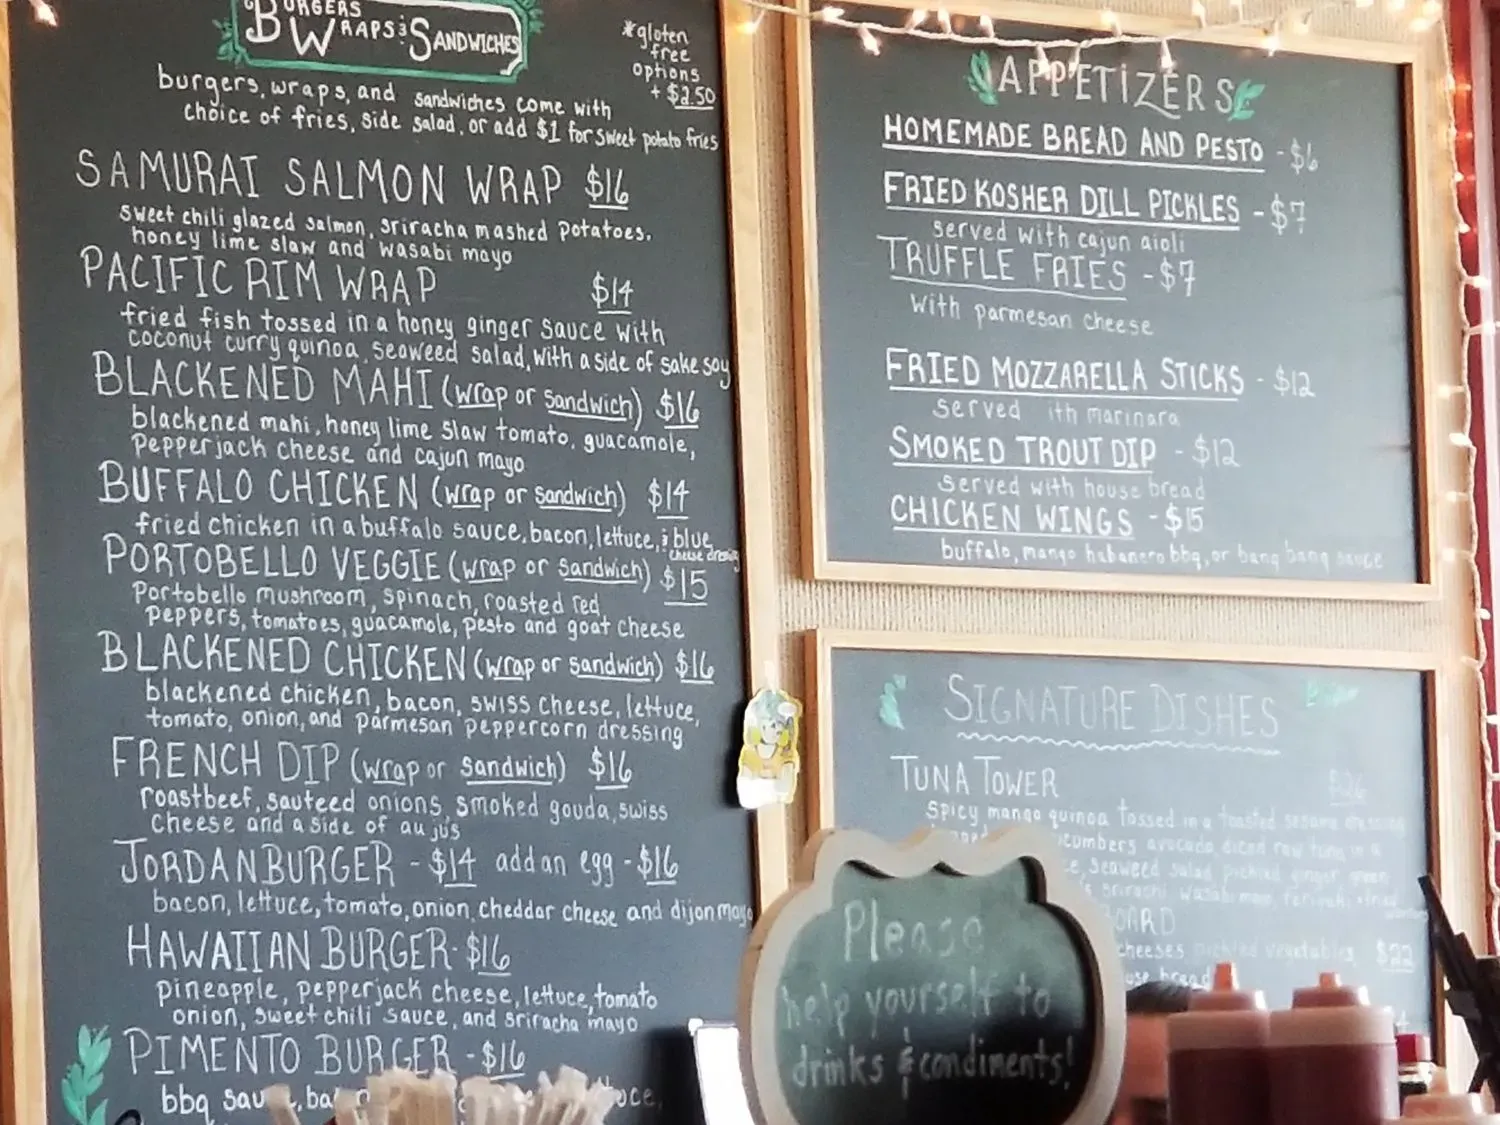 BURGERS
WRAPS & SANDWICHES
*gloten
free
options
+ $2.50
burgers, wraps, and sandwiches come with
choice of fries, side salad, or add $1 for sweet potato fries
SAMURAI SALMON WRAP $16
sweet chili glazed salmon, sriracha mashed potatoes,
honey lime slaw and wasabi mayo
PACIFIC RIM WRAP $14
fried fish tossed in a honey ginger sauce with
coconut curry quinoa, seaweed salad, with a side of sake soy
BLACKENED MAHI (wrap or sandwich) $16
blackened mahi, honey lime slaw tomato, guacamole,
pepperjack cheese and cajun mayo
BUFFALO CHICKEN (wrap or sandwich) $14
fried chicken in a buffalo sauce, bacon, lettuce, & blue
cheese dressing
PORTOBELLO VEGGIE (wrap or sandwich) $15
portobello mushroom, spinach, roasted red
peppers, tomatoes, guacamole, pesto and goat cheese
BLACKENED CHICKEN (wrap or sandwich) $16
blackened chicken, bacon, swiss cheese, lettuce,
tomato, onion, and parmesan peppercorn dressing
FRENCH DIP (wrap or sandwich) $16
roastbeef, sauteed onions, smoked gouda, swiss
cheese and a side of au jus
JORDAN BURGER - $14 add an egg - $16
bacon, lettuce, tomato, onion, cheddar cheese and dijon mayo
HAWAIIAN BURGER - $16
pineapple, pepperjack cheese, lettuce, tomato
onion, sweet chili sauce, and sriracha mayo
PIMENTO BURGER - $16
bbq
APPETIZERS
HOMEMADE BREAD AND PESTO - $6
FRIED KOSHER DILL PICKLES - $7
served with cajun aioli
TRUFFLE FRIES - $7
with parmesan cheese
FRIED MOZZARELLA STICKS - $12
served ith marinara
SMOKED TROUT DIP - $12
served with house bread
CHICKEN WINGS - $15
buffalo, mango habanero bbq, or bang bang sauce
SIGNATURE DISHES
TUNA TOWER
spicy mango quinoa tossed in a toasted sesame dressing
avocado, diced raw tuna in a
seaweed salad pickled ginger green
cheeses pickled vegetables, $22
bread
Please
help yourself to
drinks & condiments!